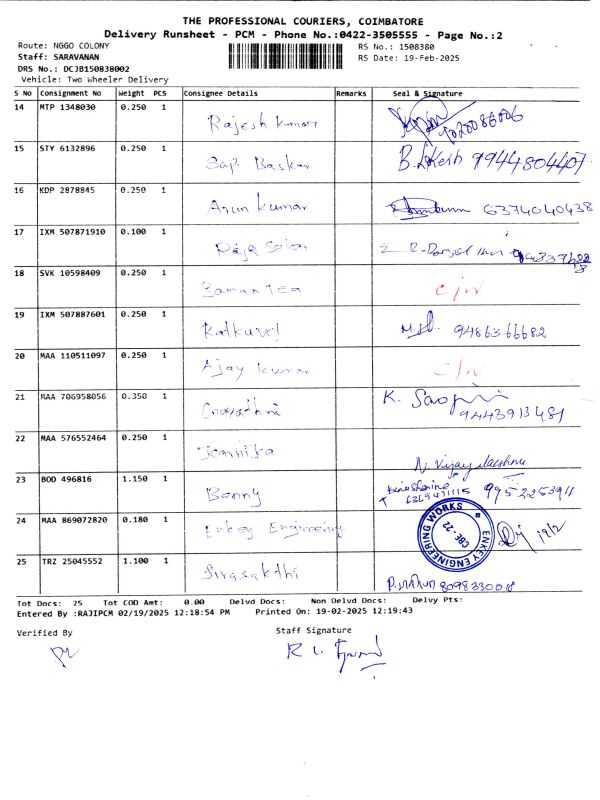 THE PROFESSIONAL COURIERS, COIMBATORE
Delivery Runsheet - PCM - Phone No.:0422-3505555 - Page No.:2
Route: NGGO COLONY
RS No.: 1508380
Staff: SARAVANAN
RS Date: 19-Feb-2025
DRS No.: DCJB150838002
Vehicle: Two Wheeler Delivery
S No Consignment No Weight PCS Consignee Details Remarks Seal & Signature
14 MTP 1348030 0.250 1 Rajesh Kumar
15 STY 6132896 0.250 1 Baskar B. Lokesh 9944804407
16 KDP 2878845 0.250 1 Arun Kumar 6374040438
17 IXM 507871910 0.100 1 Raja
18 SVK 10598409 0.250 1
19 IXM 507887601 0.250 1 9486366682
20 MAA 110511097 0.250 1 Ajay Kumar
21 MAA 706958056 0.350 1 Gayathri K. 9443913481
22 MAA 576552464 0.250 1 N. Vijayalakshmi
23 BOD 496816 1.150 1 Benny 6369471115 9952253911
24 MAA 869072820 0.180 1 Enkey Engineering ENKEY ENGINEERING WORKS CBE - 22 19/2
25 TRZ 25045552 1.100 1 Sivasakthi
Tot Docs: 25 Tot COD Amt: 0.00 Delvd Docs: Non Delvd Docs: Delvy Pts:
Entered By :RAJIPCM 02/19/2025 12:18:54 PM Printed On: 19-02-2025 12:19:43
Verified By
Staff Signature